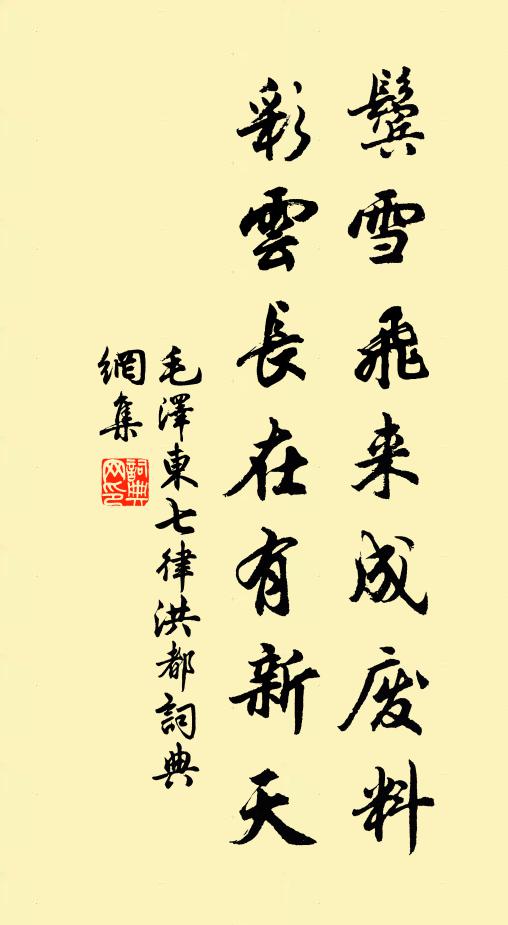 鬓雪飛来成废料
彩雲長在有新天
毛澤東七律洪都詞典
網集
詞典
网印